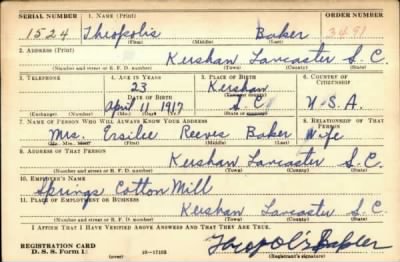 SERIAL NUMBER 1. NAME (Print) ORDER NUMBER
1524 Theopolis Baker 3491
(First) (Middle) (Last)
2. ADDRESS (Print)
Kershaw Lancaster S.C.
(Number and street or R. F. D. number) (Town) (County) (State)
3. TELEPHONE 4. AGE IN YEARS 5. PLACE OF BIRTH 6. COUNTRY OF CITIZENSHIP
23 Kershaw
DATE OF BIRTH (Town)
April 11 1917 S.C. U.S.A.
(Exchange) (Number) (Mo.) (Day) (Yr.) (State or country)
7. NAME OF PERSON WHO WILL ALWAYS KNOW YOUR ADDRESS 8. RELATIONSHIP OF THAT PERSON
Mrs. Ersilee Reeves Baker Wife
(Mr., Mrs., Miss) (First) (Middle) (Last)
9. ADDRESS OF THAT PERSON
Kershaw Lancaster S.C.
(Number and street or R. F. D. number) (Town) (County) (State)
10. EMPLOYER'S NAME
Springs Cotton Mill
11. PLACE OF EMPLOYMENT OR BUSINESS
Kershaw Lancaster S.C.
(Number and street or R. F. D. number) (Town) (County) (State)
I AFFIRM THAT I HAVE VERIFIED ABOVE ANSWERS AND THAT THEY ARE TRUE.
REGISTRATION CARD
D. S. S. Form 1 (over) 16—17105 (Registrant's signature)